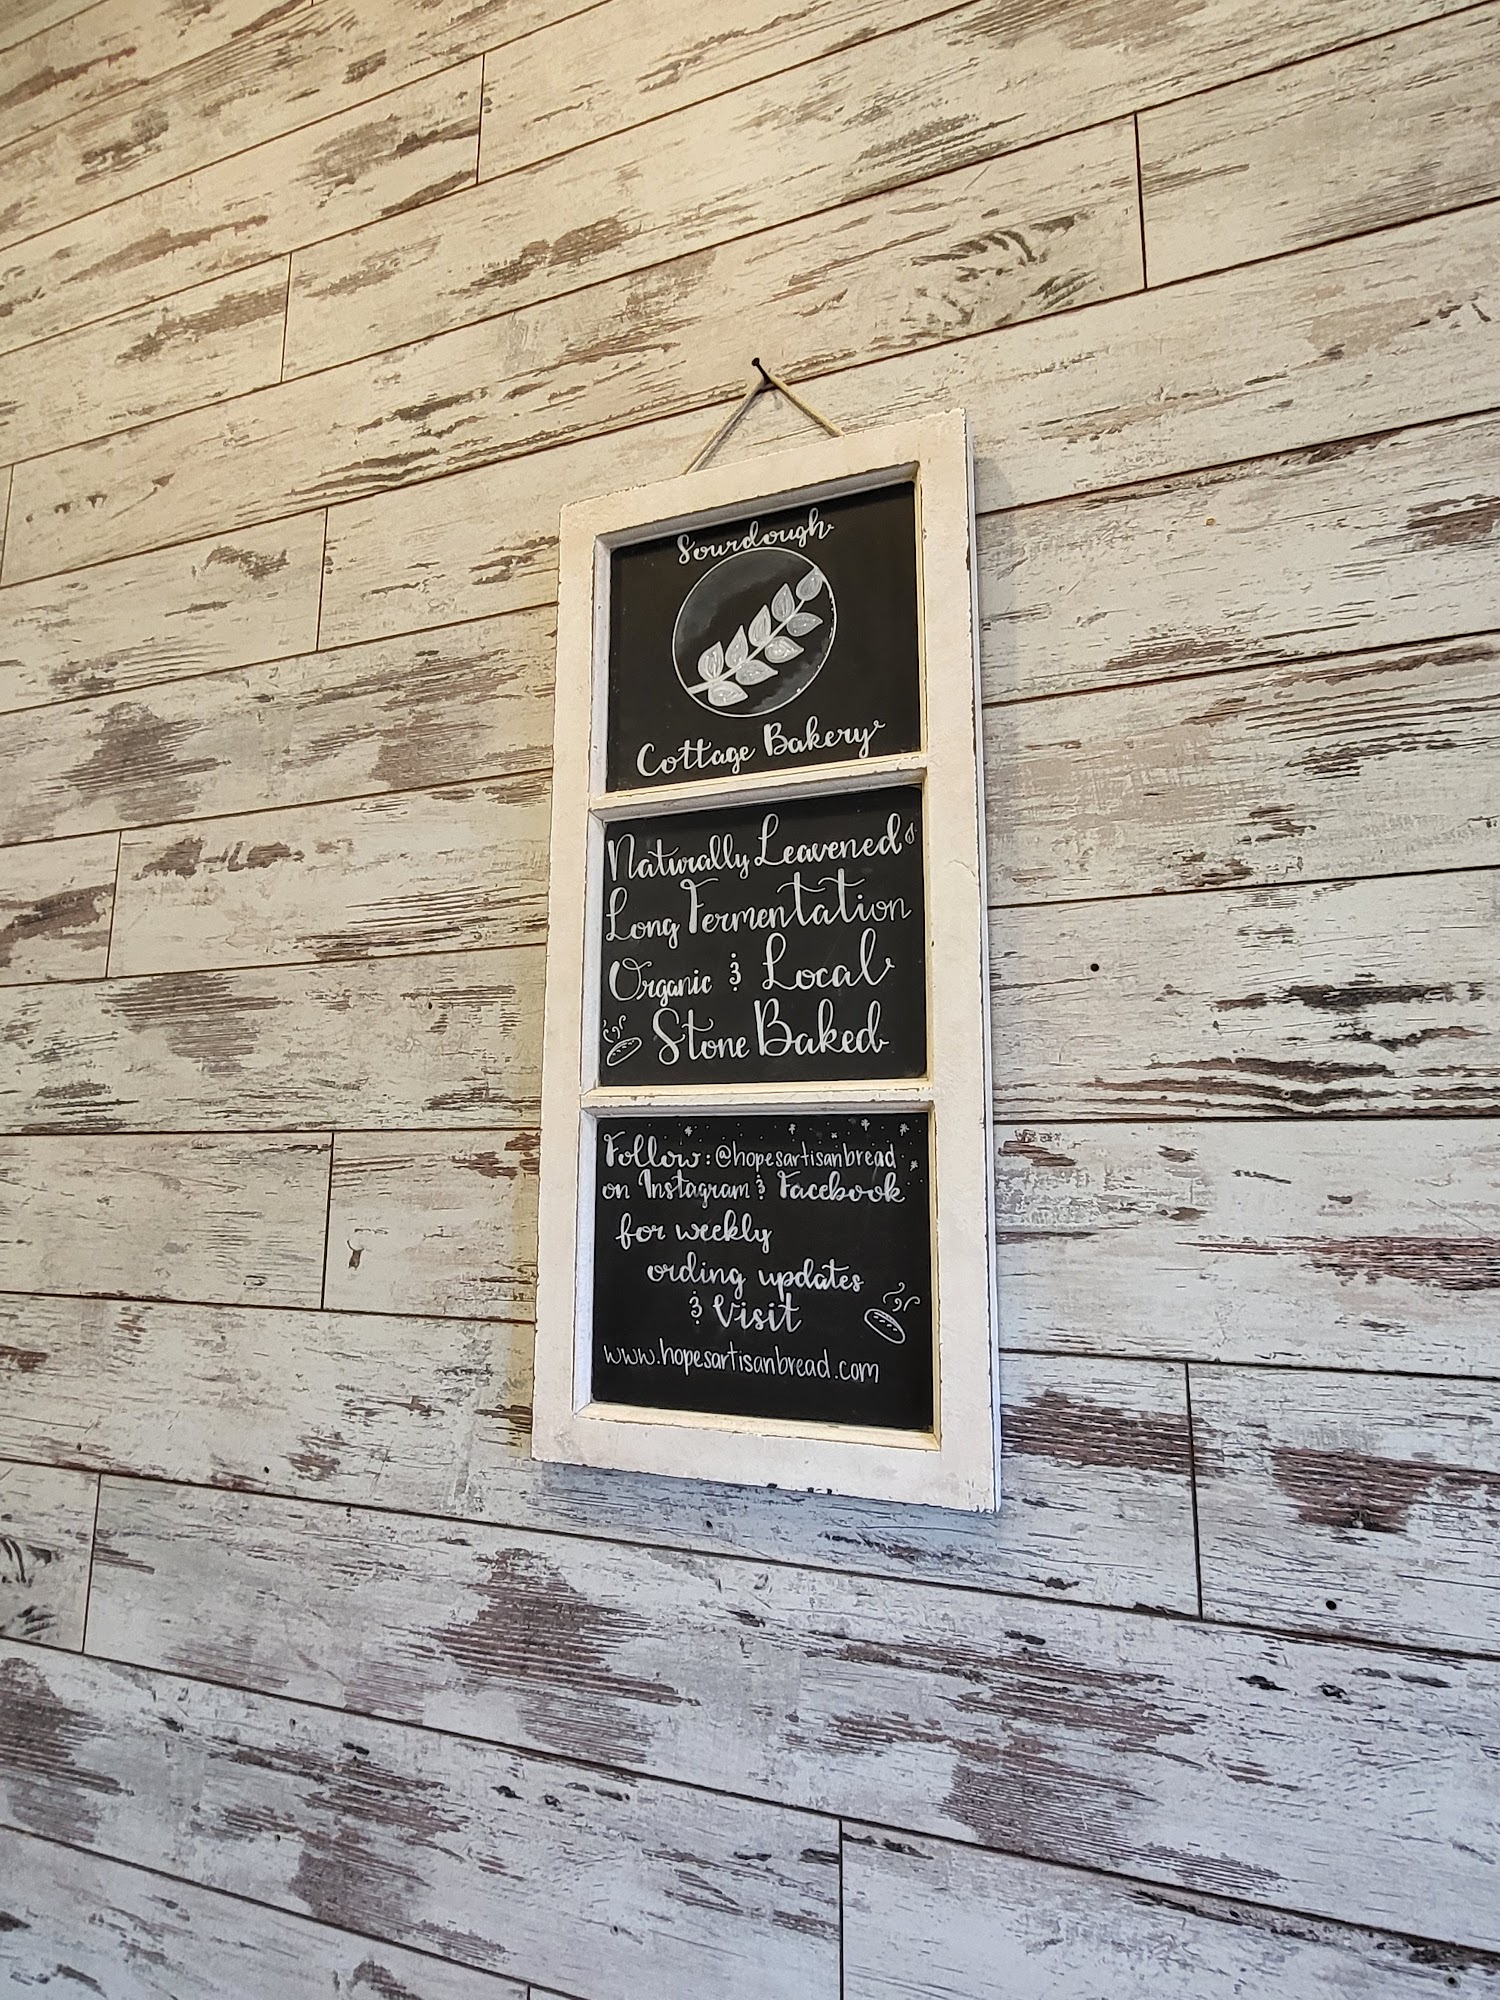 Sourdough
Cottage Bakery
Naturally Leavened
Long Fermentation
Organic & Local
Stone Baked
Follow: @hopesartisanbread
on Instagram & Facebook
for weekly
ording updates
& Visit
www.hopesartisanbread.com